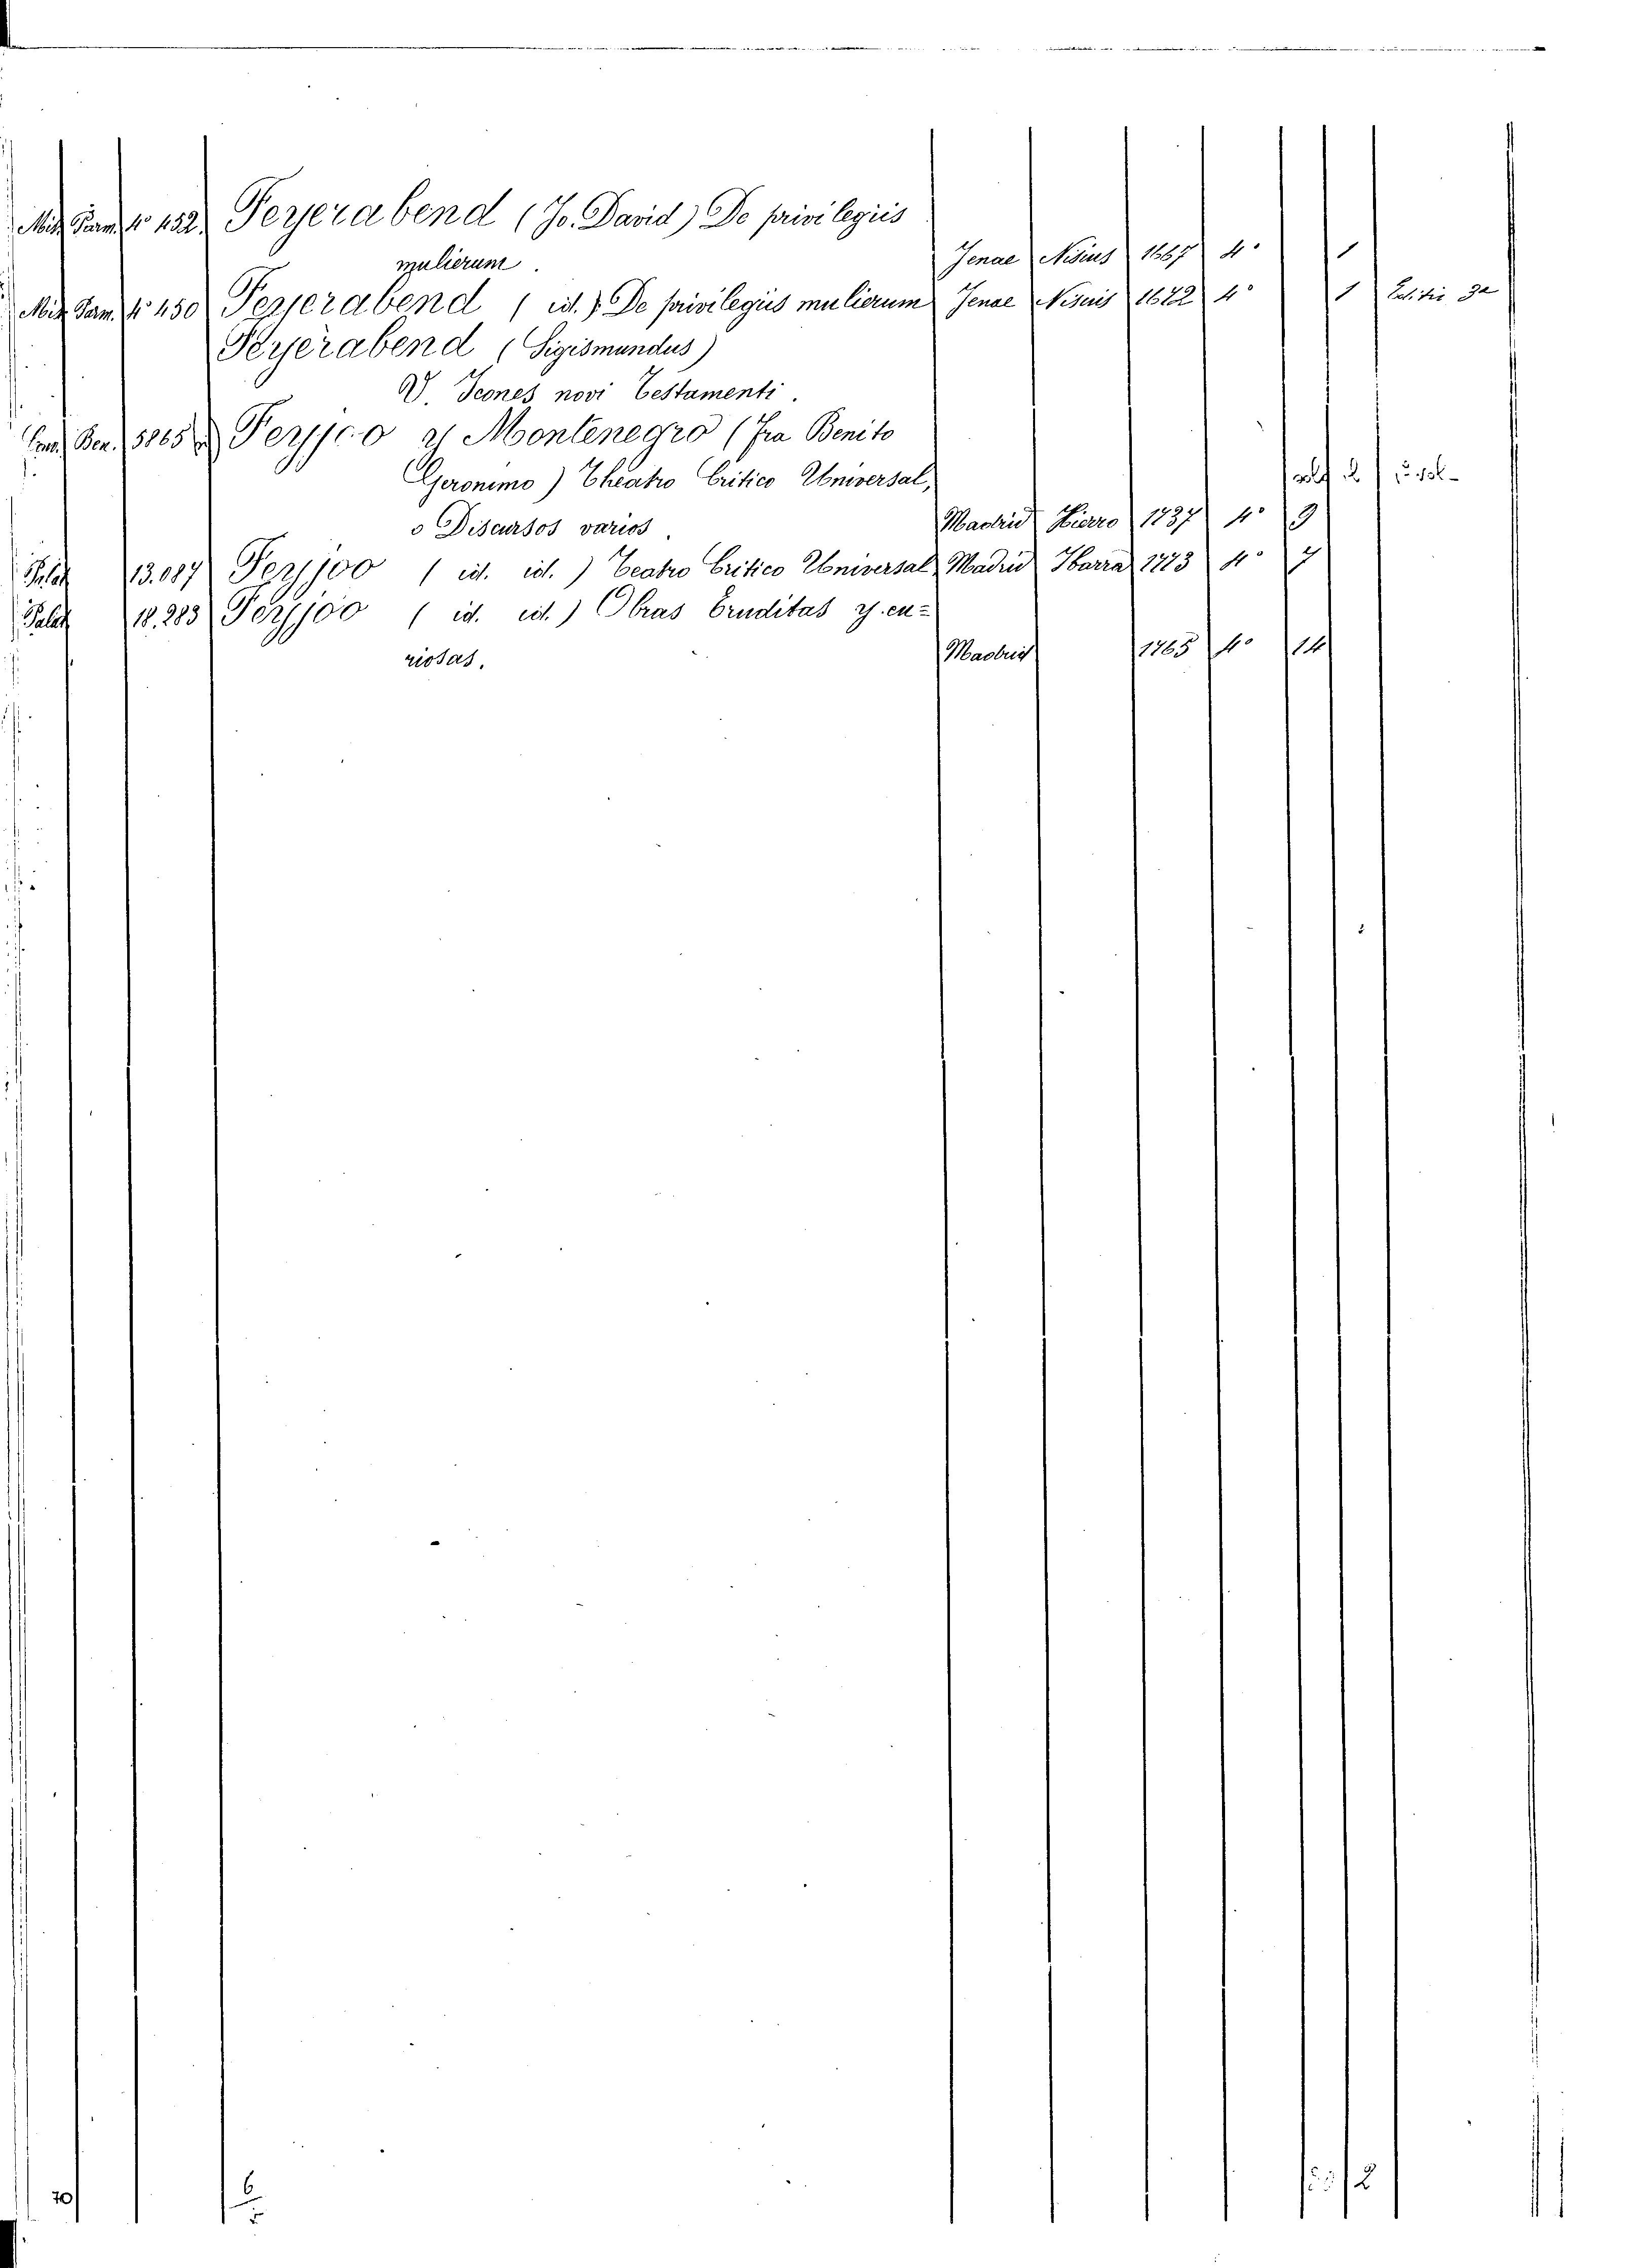 Misc. Parm. 4° 452 Feyerabend (Jo. David) De privilegiis
mulierum. Jenae Nisius 1667 4° 1
Misc. Parm. 4° 450 Feyerabend (id.) De privilegiis mulierum Jenae Nisius 1672 4° 1 Editio 3a
Feyerabend (Sigismundus)
V. Icones novi Testamenti.
Ben. 5865 Feyjoo y Montenegro (Fra Benito
Geronimo) Theatro Critico Universal,
o Discursos varios. Madrid Hierro 1737 4° 9
Palat 13.087 Feyjoo (id. id.) Teatro Critico Universal Madrid Ibarra 1773 4° 7
Palat 18.283 Feyjoo (id. id.) Obras Eruditas y cu=
riosas. Madrid 1765 4° 14
70 6 2